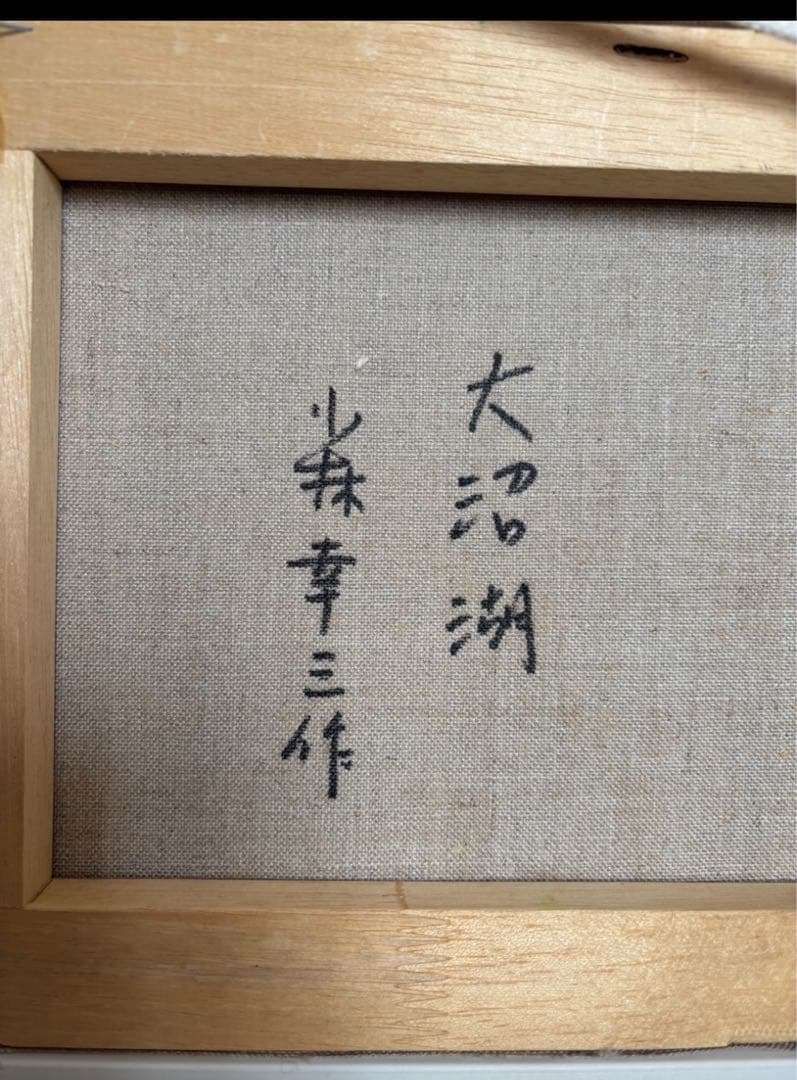 大沼湖
小林幸三作